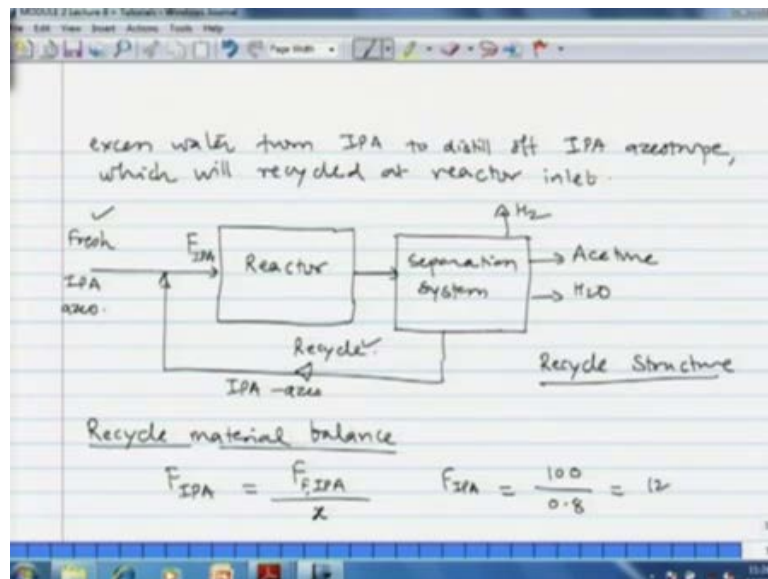 MODULE 2 Lecture 8 - Tutorials - Windows Journal
Edit View Insert Actions Tools Help
Page Width
excen water turn IPA to distill off IPA azeotrope,
which will recycled at reactor inlet.
H2
Fresh
IPA
azeo.
F IPA
Reactor
Separation
System
Acetone
H2O
Recycle
IPA - azeo
Recycle Structure
Recycle material balance
F IPA = F F,IPA / x F IPA = 100 / 0.8 = 12